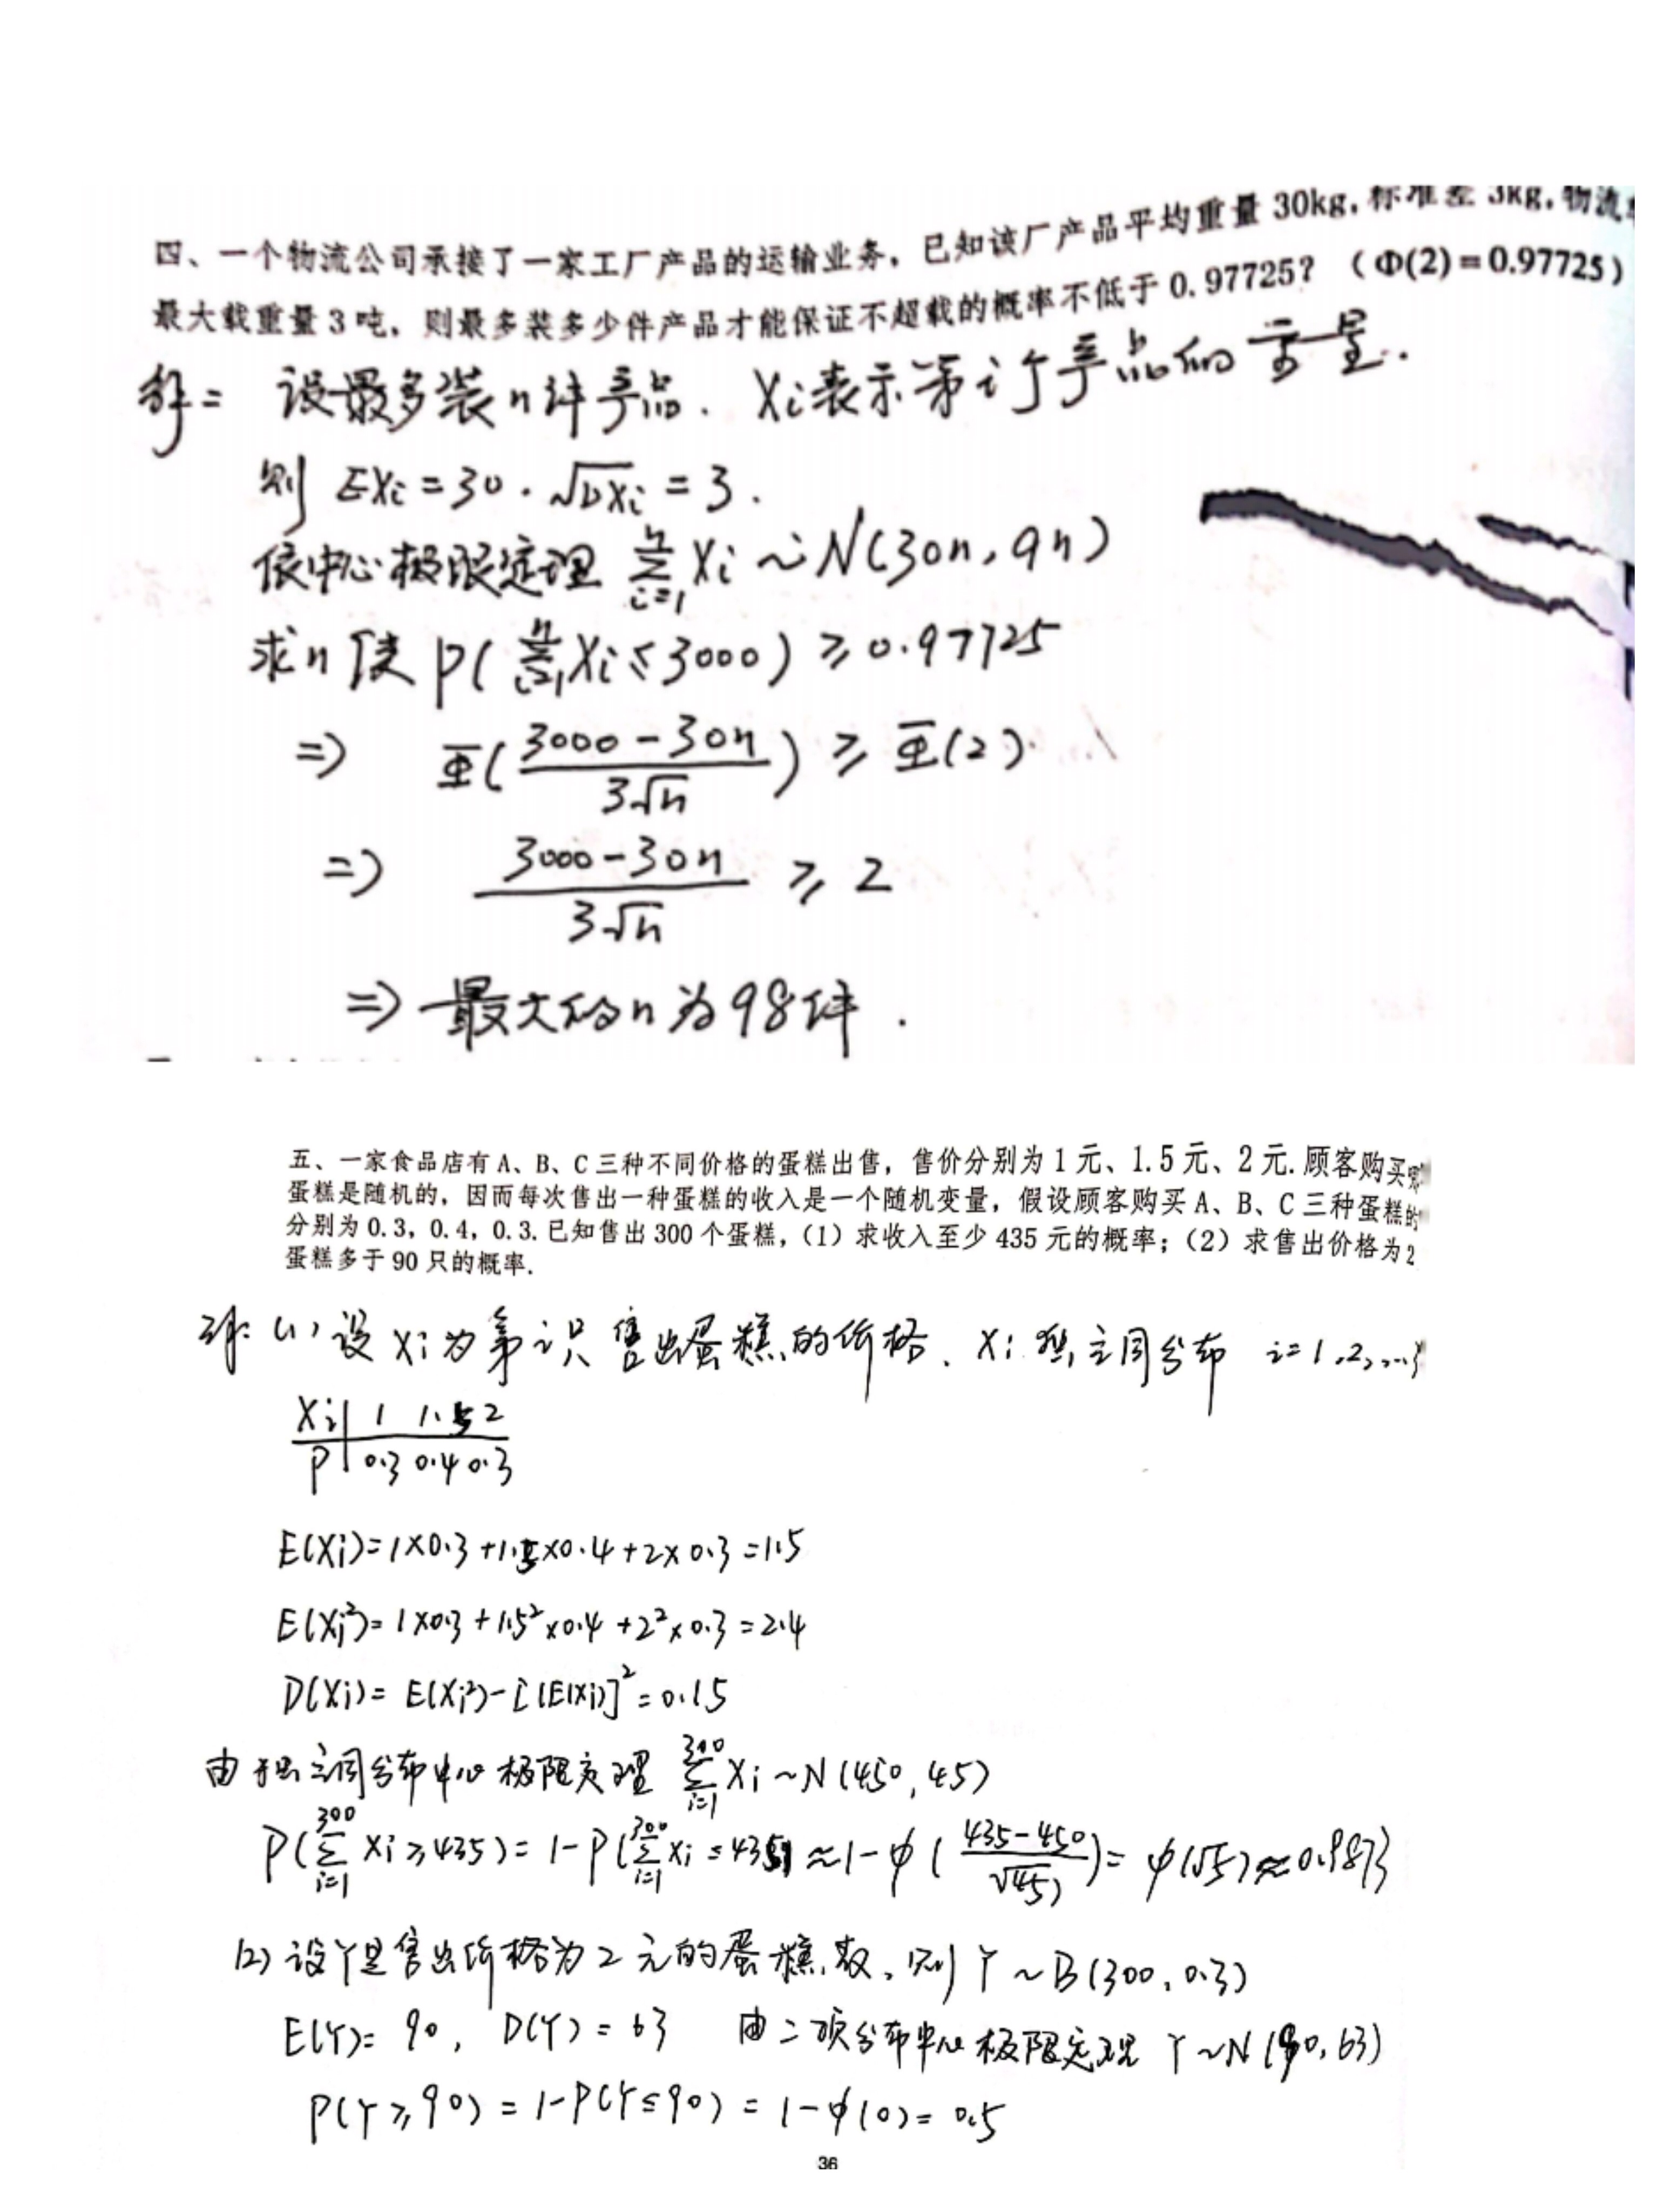 四、一个物流公司承接了一家工厂产品的运输业务，已知该厂产品平均重量 30kg，标准差 3kg，物流
最大载重量 3 吨，则最多装多少件产品才能保证不超载的概率不低于 0.97725？（Φ(2)=0.97725）
解：设最多装n件产品. Xi表示第i个产品的重量.
则 EXi=30. √DXi=3.
依中心极限定理 ∑_{i=1}^{n} Xi ~ N(30n, 9n)
求n使 P(∑_{i=1}^{n} Xi ≤ 3000) ≥ 0.97725
⇒ Φ((3000-30n)/(3√n)) ≥ Φ(2).
⇒ (3000-30n)/(3√n) ≥ 2
⇒ 最大的n为98件.
五、一家食品店有 A、B、C 三种不同价格的蛋糕出售，售价分别为 1 元、1.5 元、2 元. 顾客购买
蛋糕是随机的，因而每次售出一种蛋糕的收入是一个随机变量，假设顾客购买 A、B、C 三种蛋糕的
分别为 0.3，0.4，0.3. 已知售出 300 个蛋糕，（1）求收入至少 435 元的概率；（2）求售出价格为 2
蛋糕多于 90 只的概率.
解: (1) 设 Xi为第i只售出蛋糕的价格. Xi 独立同分布 i=1,2,...
Xi | 1 1.5 2
P | 0.3 0.4 0.3
E(Xi)=1×0.3+1.5×0.4+2×0.3=1.5
E(Xi²)=1×0.3+1.5²×0.4+2²×0.3=2.4
D(Xi)=E(Xi²)-[(E(Xi)]²=0.15
由独立同分布中心极限定理 ∑_{i=1}^{300} Xi ~ N(450, 45)
P(∑_{i=1}^{300} Xi ≥ 435) = 1-P(∑_{i=1}^{300} Xi ≤ 435) ≈ 1-φ((435-450)/√45) = φ(√5) ≈ 0.9873
(2) 设Y是售出价格为2元的蛋糕数, 则 Y~B(300, 0.3)
E(Y)=90, D(Y)=63 由二项分布中心极限定理 Y~N(90, 63)
P(Y≥90) = 1-P(Y≤90) = 1-φ(0) = 0.5
36